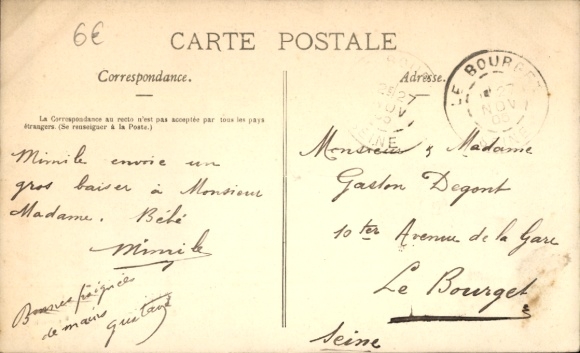 6€
CARTE POSTALE
Correspondance.
La Correspondance au recto n'est pas acceptée par tous les pays
étrangers. (Se renseigner à la Poste.)
Mimile envoie un
gros baiser à Monsieur
Madame. Bébé
Mimile
Bonnes poignées
de mains
Gustave
Adresse.
LE BOURGET
27
NOV
05
SEINE
27
NOV
05
SEINE
Monsieur & Madame
Gaston Degont
10 ter Avenue de la Gare
Le Bourget
Seine